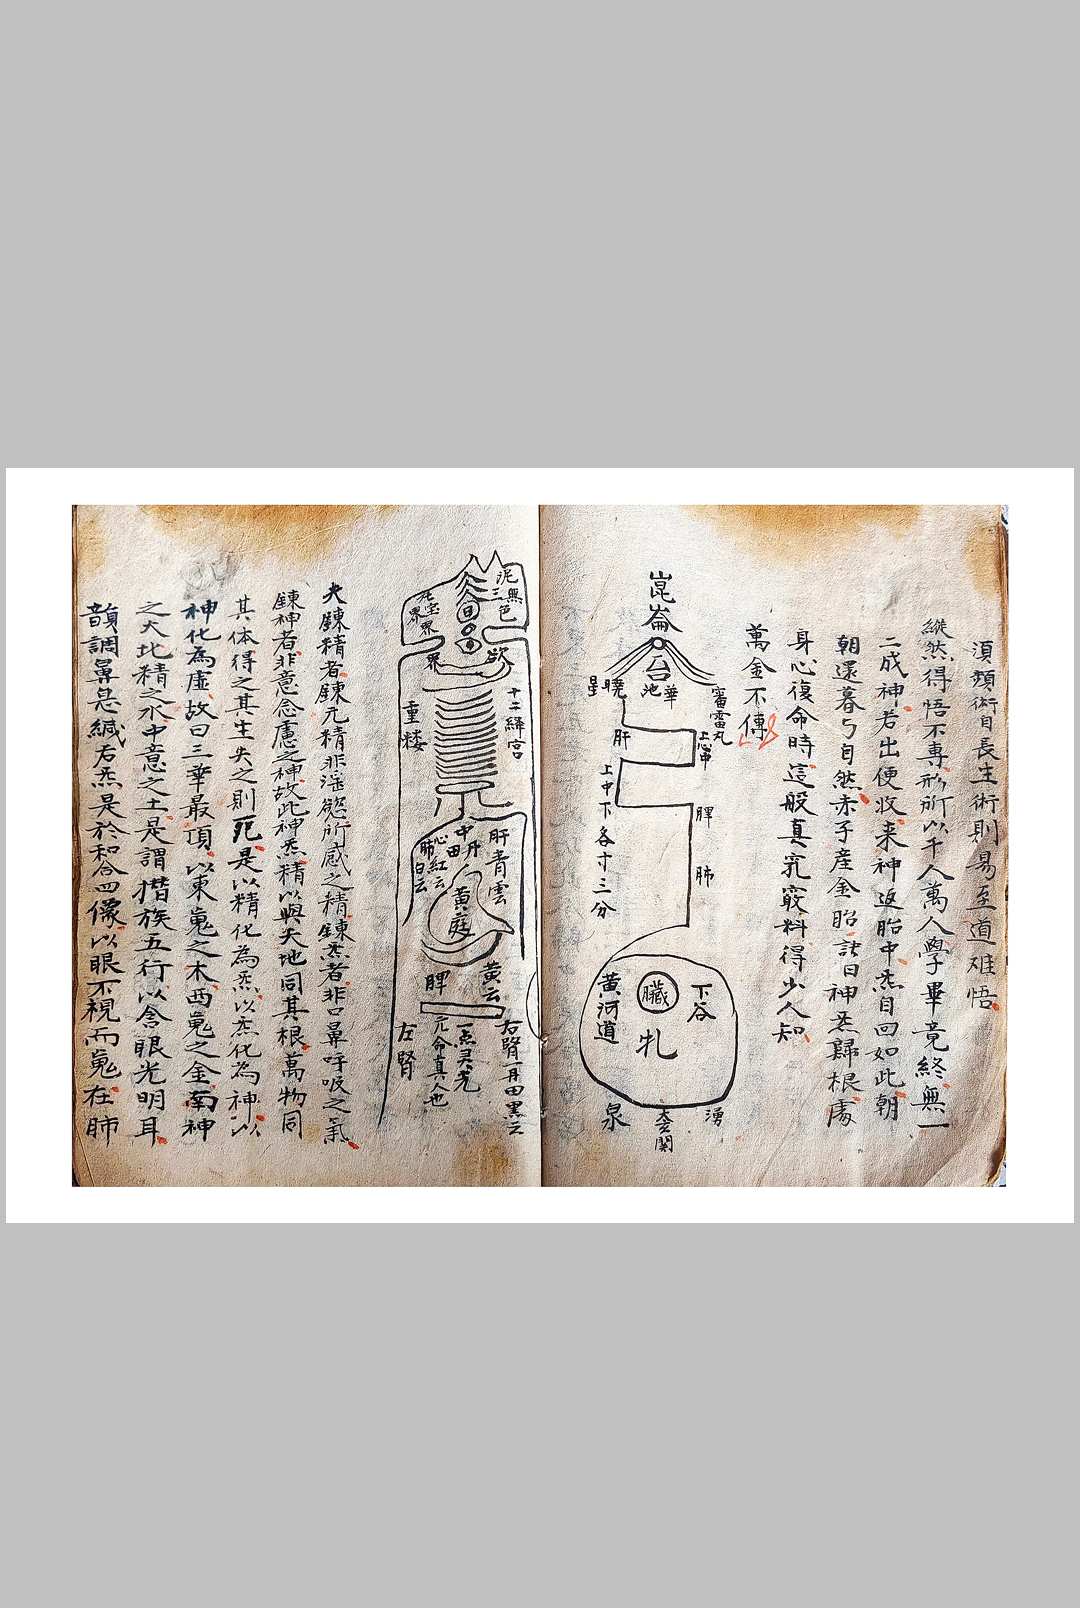 須類術自長生術則易至道难悟
縱然得悟不專形所以千人萬人學畢竟終無一
二成神若出便收来神返胎中炁自囬如此朝
朝還暮与自然赤子産金胎訣曰神炁歸根處
身心復命時這般真孔竅料得少人知
萬金不傳
崑崙
台
華
池
曉
星
審雷丸
上心中
肝
上中下各寸三分
脾
肺
下谷
臟
黄河道
湧
泉
関
泥
無色
三
界
欲
界
十二絳宮
重楼
中丹田
肝青雲
心紅云
肺白云
黄庭
黄云
脾
右腎
左腎
元命真人也
夫錬精者錬元精非淫慾所感之精錬炁者非口鼻呼吸之氣
錬神者非意念慮之神故此神炁精以與天地同其根萬物同
其体得之其生失之則死是以精化為炁以炁化為神以
神化為虚故曰三華最頂以東䰟之木西䰟之金南神
之火北精之水中意之土是謂攅族五行以含眼光明耳
韻調鼻息緘舌炁是於和合四像以眼不視而䰟在肺